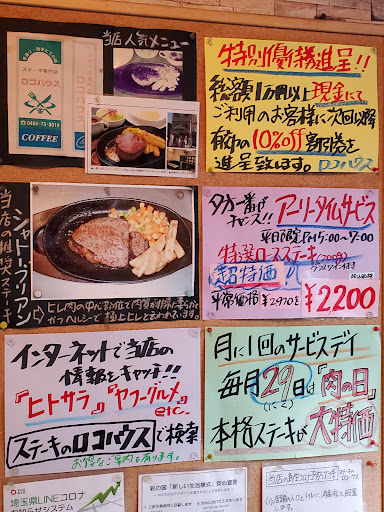 当店人気メニュー
ステーキ専門店
ロコハウス
COFFEE
特別優待進呈!!
総額1万円以上現金にて
ご利用のお客様に次回以降
有効の10%off割引券を
進呈致します。ロコハウス
当店の推奨ステーキ
シャトーブリアン
⇨ヒレ肉の中心部位で肉質が特に柔らかく
かつヘルシーで極上ヒレと言われています。
夕方一番がチャンス!!
アーリータイムサービス
平日限定Pm5:00~7:00
特選ロースステーキ(200g)
超特価
平常価格¥2970を
¥2200
インターネットで当店の
情報をキャッチ!!
『ヒトサラ』『ヤフーグルメ』
etc.
ステーキのロコハウスで検索
お得なご案内も有ります。
月に1回のサービスデイ
毎月29日は「肉の日」
(にく)
本格ステーキが大特価
埼玉県LINEコロナ
お知らせシステム
彩の国「新しい生活様式」安心宣言